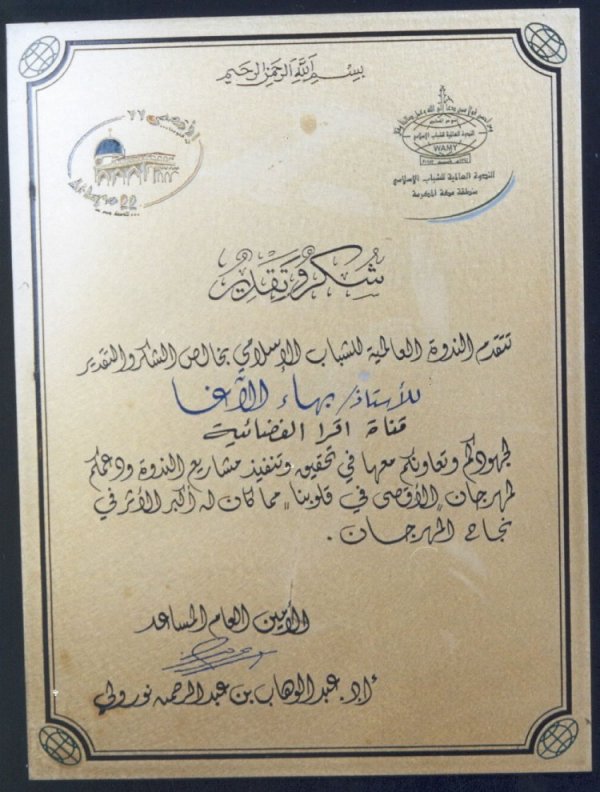 بسم الله الرحمن الرحيم
الأقصى ٢٢
Al-Aqsa 22
WAMY
الندوة العالمية للشباب الإسلامي
الندوة العالمية للشباب الإسلامي
منطقة مكة المكرمة
شكر وتقدير
تتقدم الندوة العالمية للشباب الإسلامي بخالص الشكر والتقدير
للأستاذ/ بهاء الأغا
قناة اقرا الفضائية
لجهودكم وتعاونكم معها في تحقيق وتنفيذ مشاريع الندوة ودعمكم
لمهرجان "الأقصى في قلوبنا" مما كان له أكبر الأثر في
نجاح المهرجان .
الأمين العام المساعد
أ.د. عبد الوهاب بن عبد الرحمن نورولي